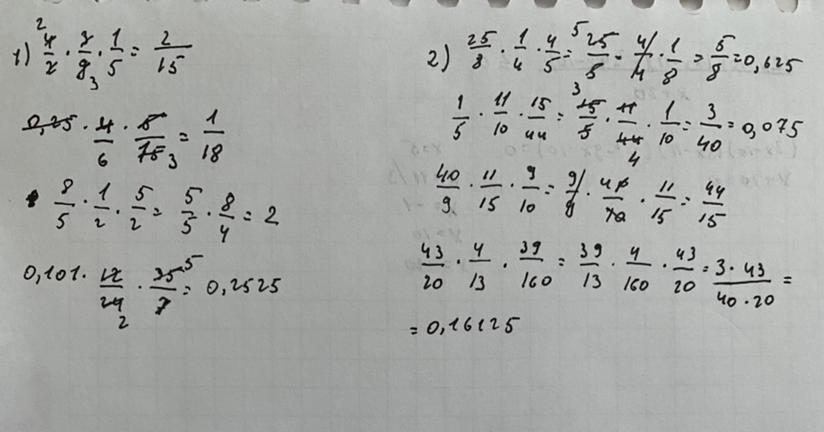 1) 4/2 · 3/9 · 1/5 = 2/15
0,25 · 4/6 · 5/15 = 1/18
8/5 · 1/2 · 5/2 = 5/5 · 8/4 = 2
0,101 · 12/24 · 35/7 = 0,2525
2) 25/8 · 1/4 · 4/5 = 25/5 · 4/4 · 1/8 = 5/8 = 0,625
1/5 · 11/10 · 15/44 = 15/5 · 11/44 · 1/10 = 3/40 = 0,075
40/9 · 11/15 · 9/10 = 9/9 · 40/10 · 11/15 = 44/15
43/20 · 4/13 · 39/160 = 39/13 · 4/160 · 43/20 = 3 · 43/40 · 20 =
= 0,16125